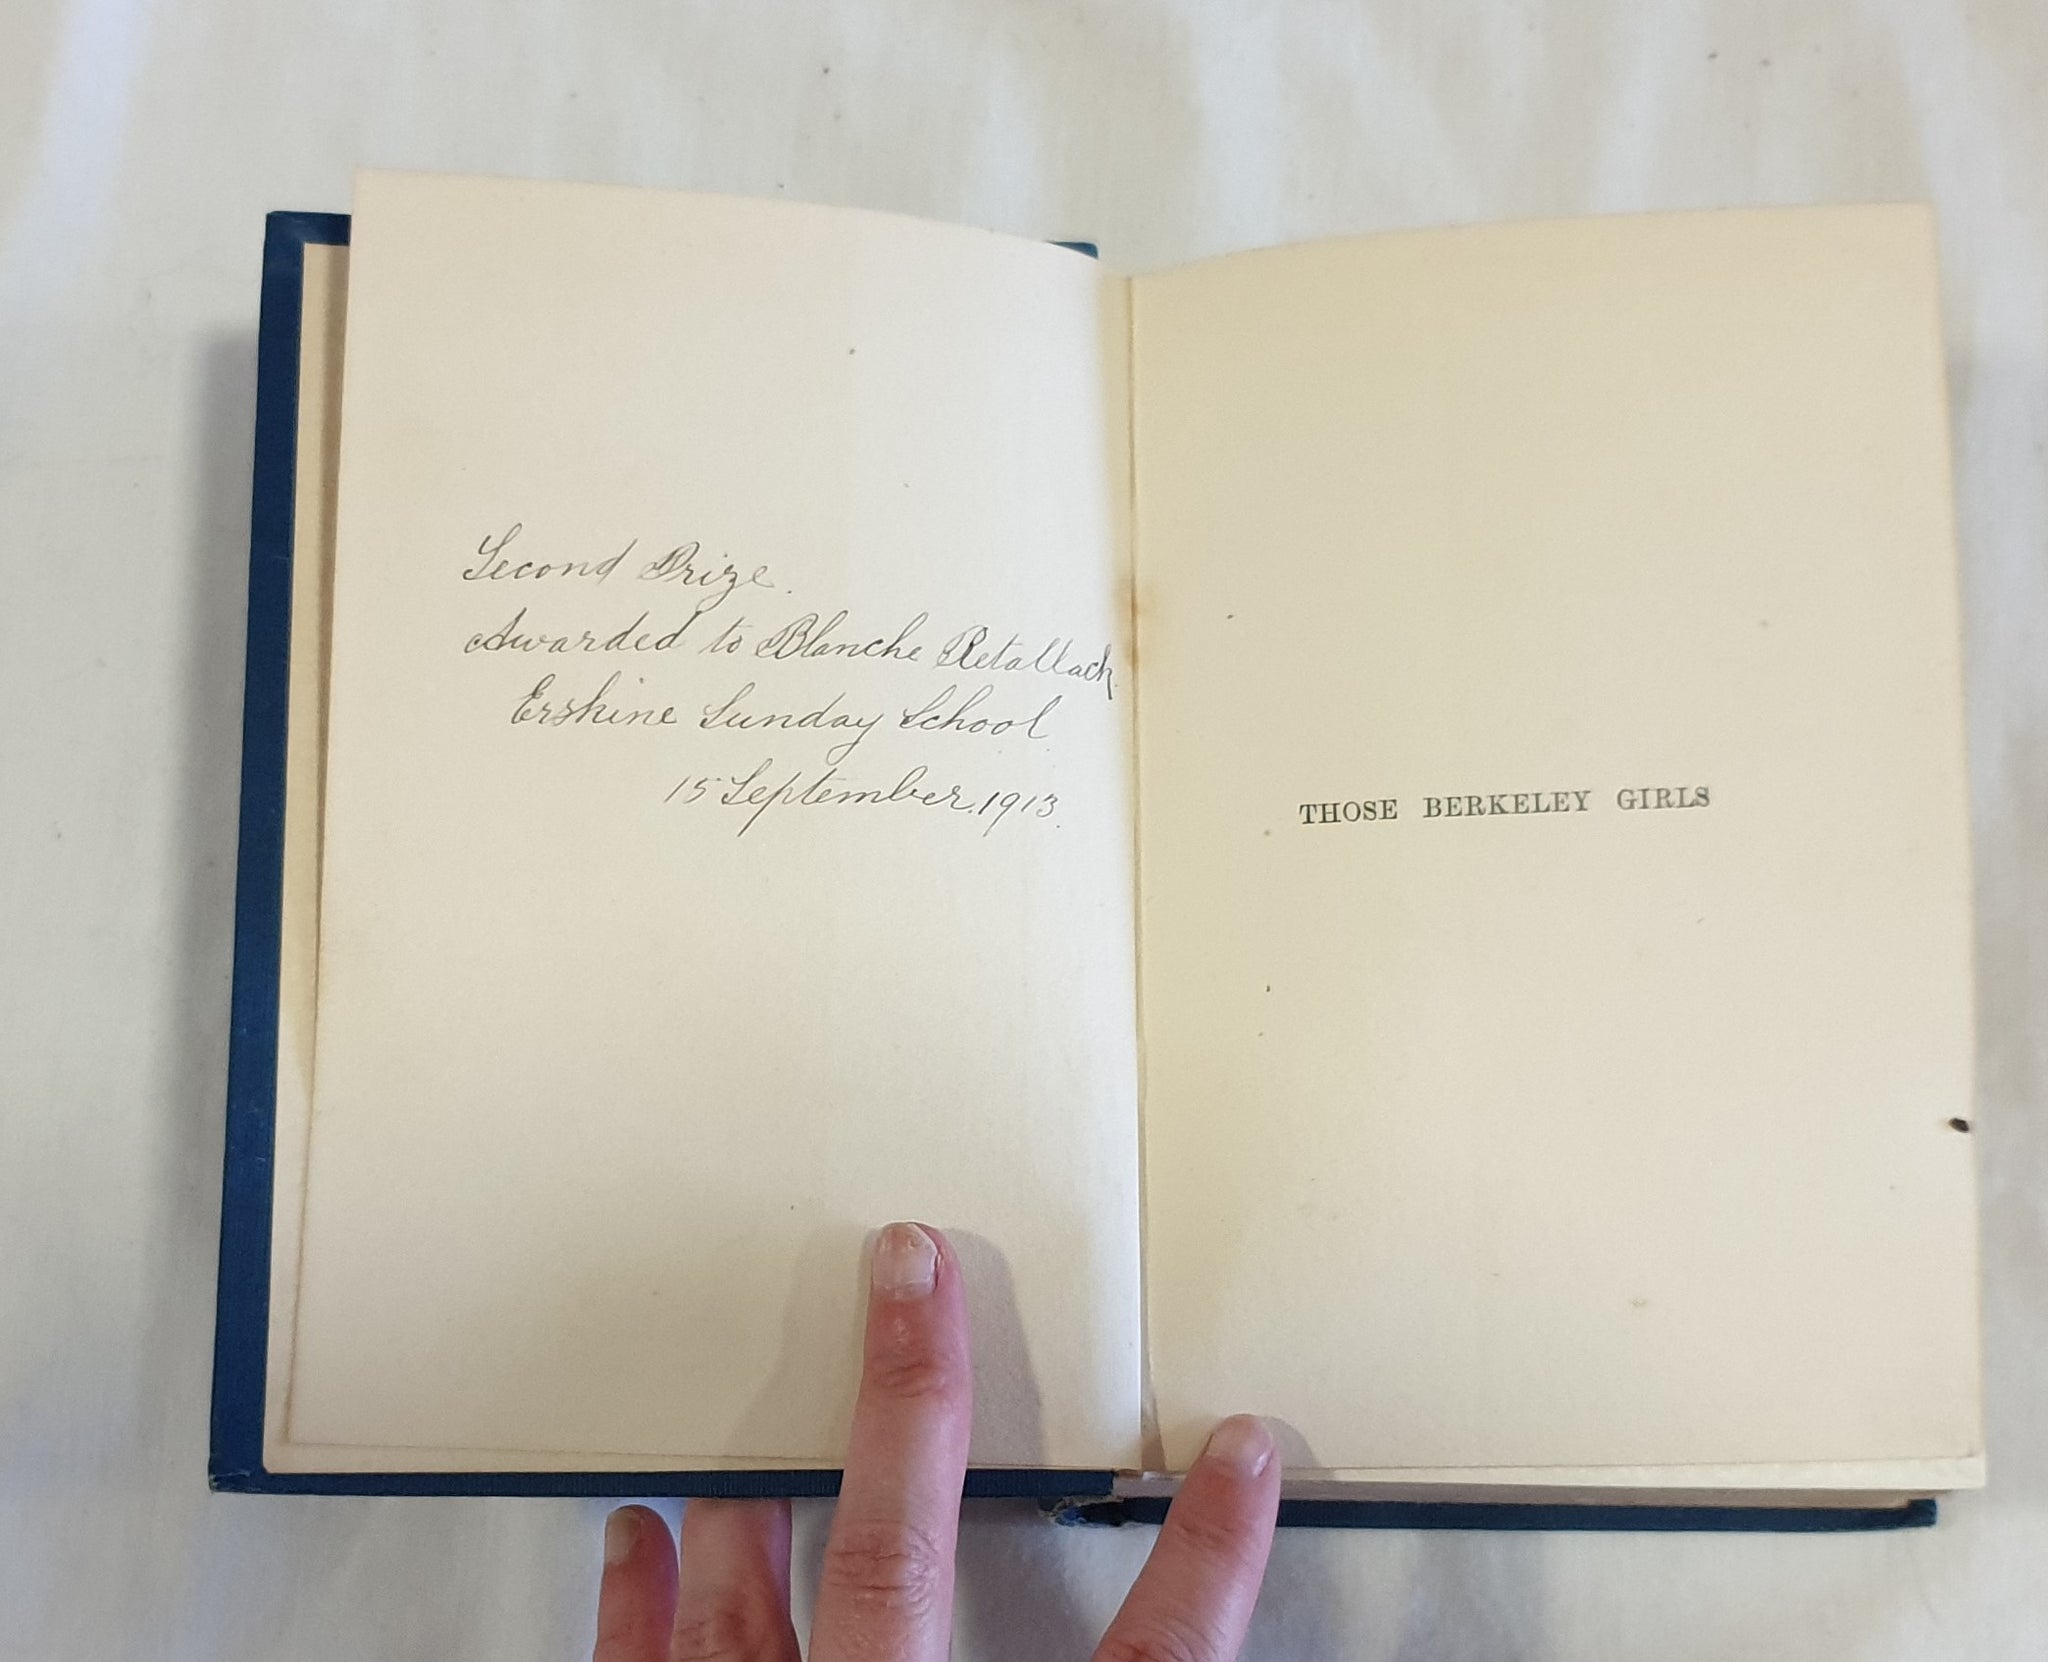 Second Prize.
Awarded to Blanche Retallack.
Erskine Sunday School
15 September. 1913.
THOSE BERKELEY GIRLS